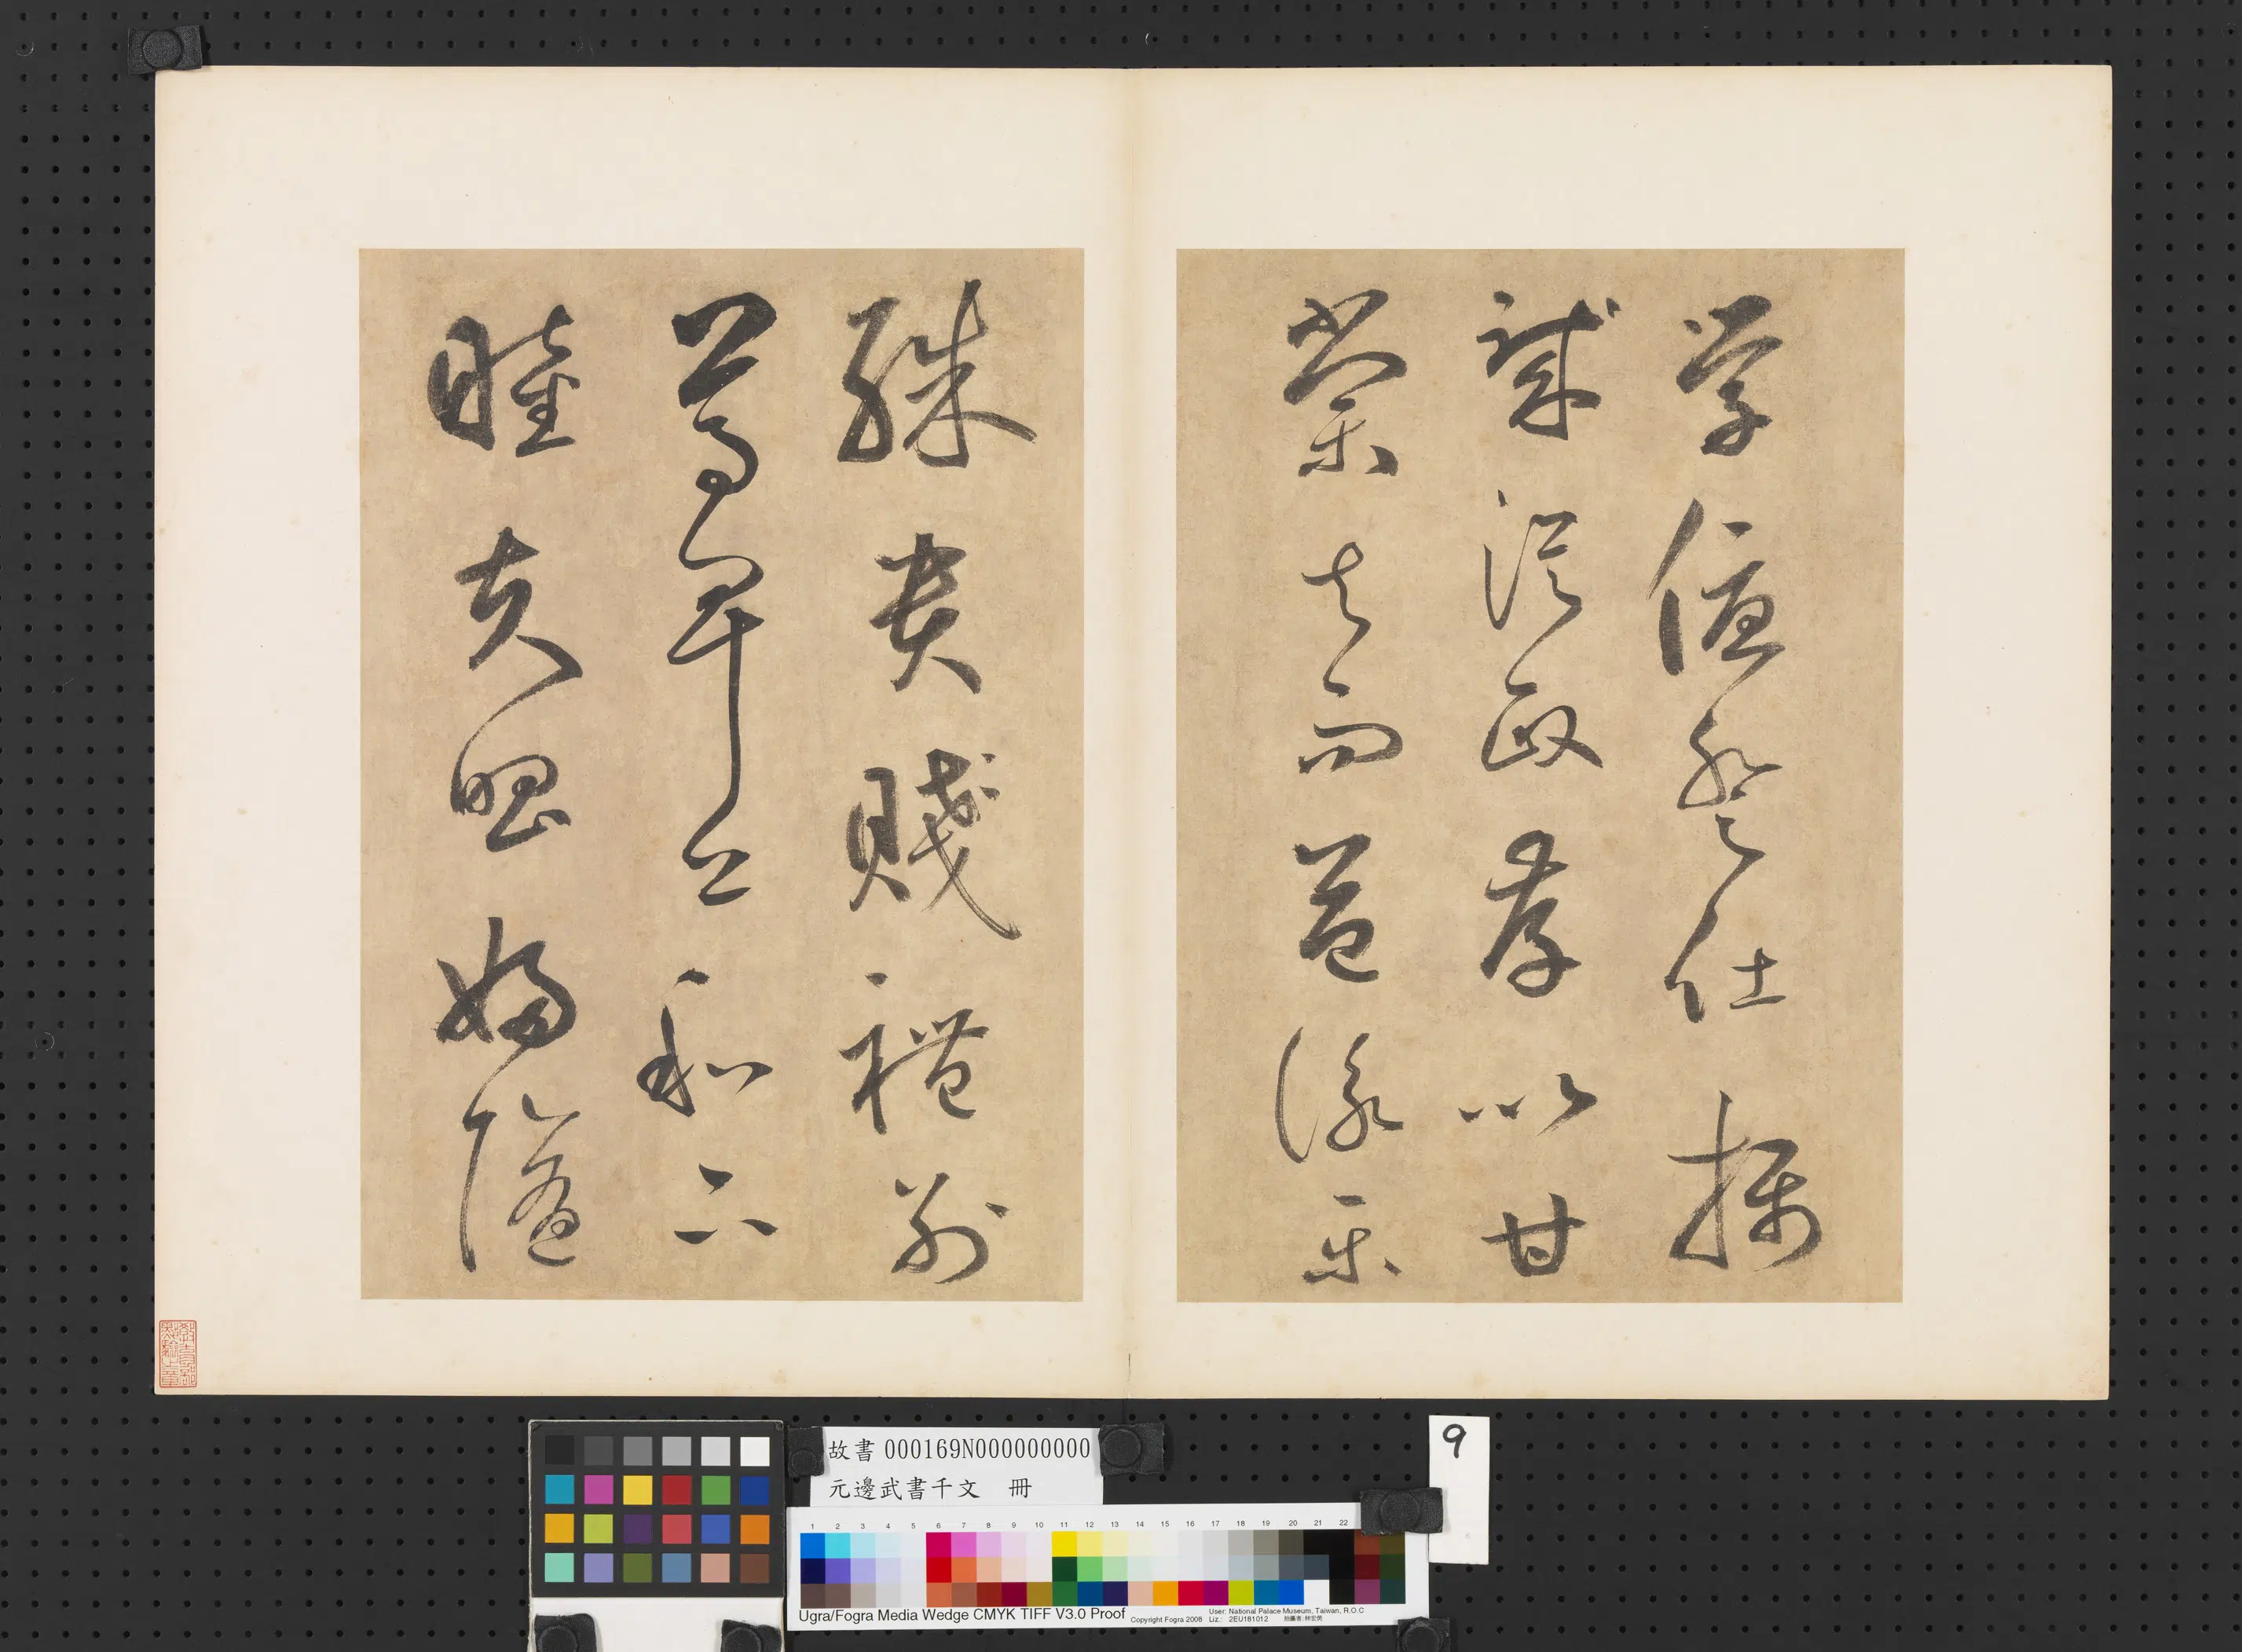 學優登仕攝
職從政存以甘
棠去而益詠樂
殊貴賤禮別
尊卑上和下
睦夫唱婦隨
故書 000169N000000000
元邊武書千文 冊
9
1 2 3 4 5 6 7 8 9 10 11 12 13 14 15 16 17 18 19 20 21 22
Ugra/Fogra Media Wedge CMYK TIFF V3.0 Proof
Copyright Fogra 2008
User: National Palace Museum, Taiwan, R.O.C
Liz.: 2EU181012